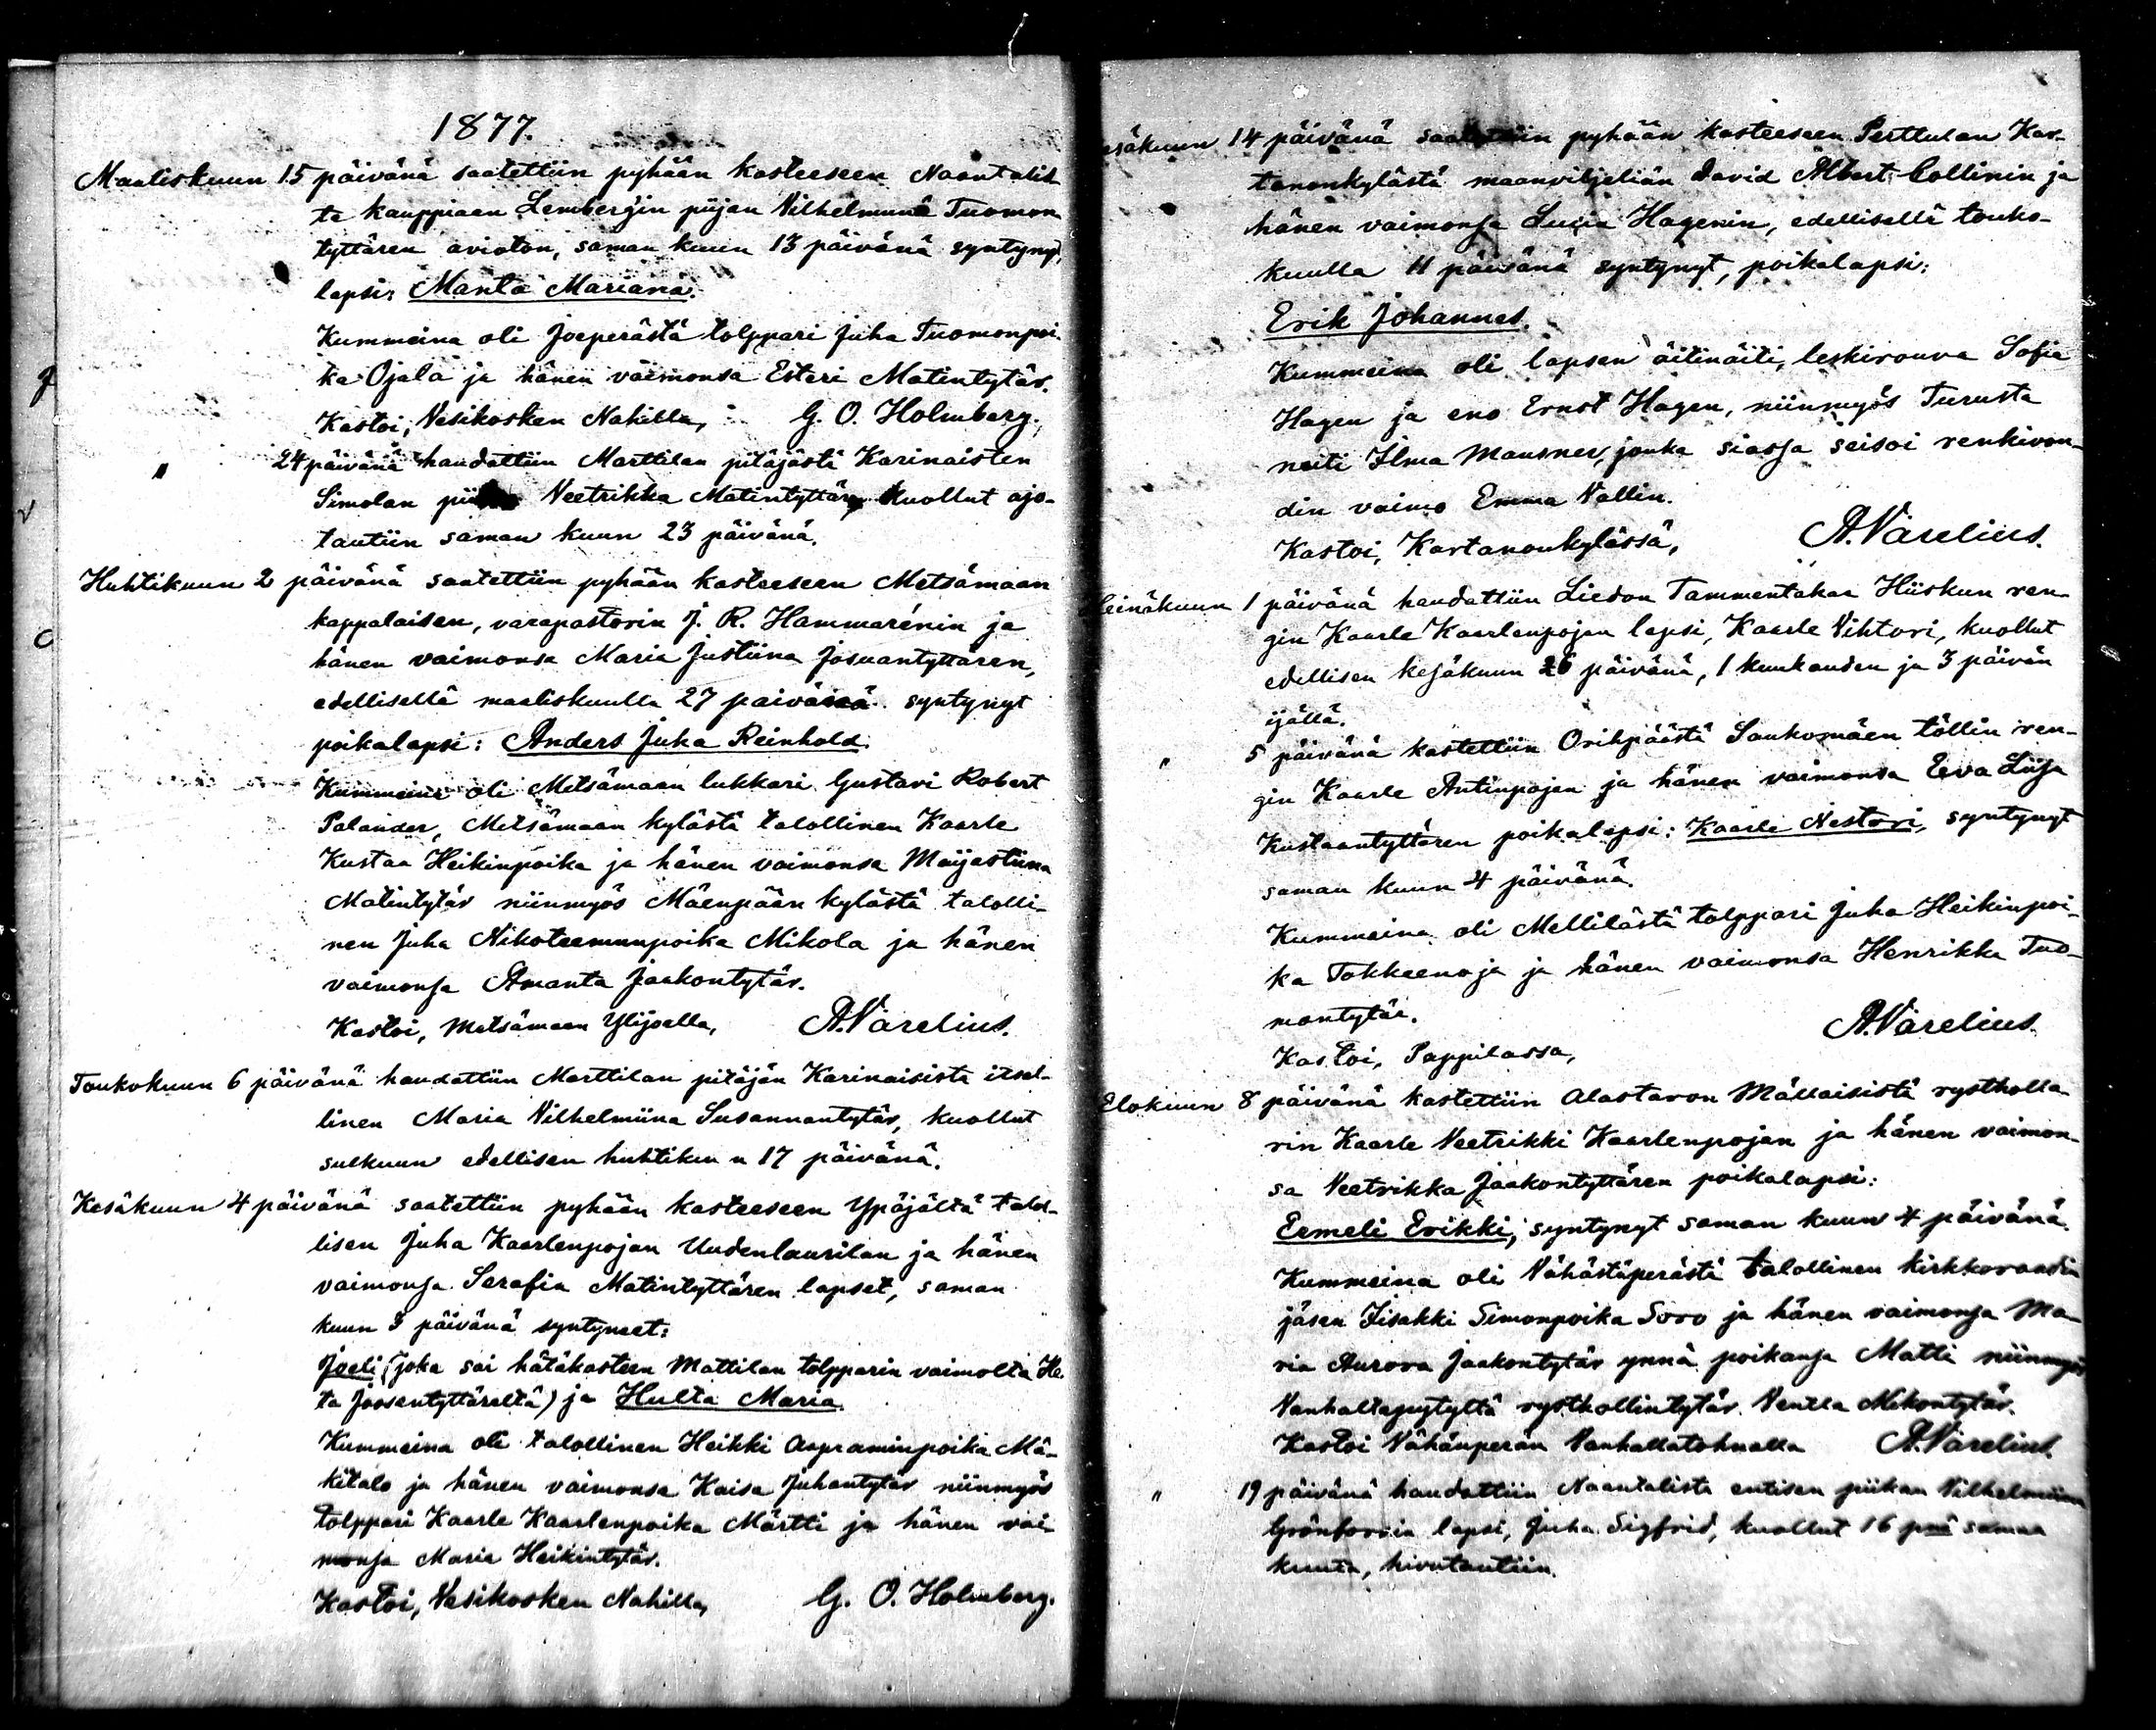 1877.
Maaliskuun 15 päivänä saatettiin pyhään kasteeseen Naantalis-
ta kauppiaan Lemberg'in piijan Vilhelmiina Tuomon
tyttären avioton, saman kuun 13 päivänä syntynyt,
lapsi: Manta Mariana.
Kummeina oli Joeperästä tolppari Juha Tuomonpoi-
ka Ojala ja hänen vaimonsa Esteri Matintytär.
Kastoi, Vesikosken Nahilla, G. O. Holmberg.
" 24 päivänä haudattiin Marttilan pitäjästä Karinaisten
Simolan Veetrikka Matintyttär, kuollut ajo-
tautiin saman kuun 23 päivänä.
Huhtikuun 2 päivänä saatettiin pyhään kasteeseen Metsämaan
kappalaisen, varapastorin J. R. Hammarénin ja
hänen vaimonsa Maria Justiina Josuantyttären,
edellisellä maaliskuulla 27 päivänä syntynyt
poikalapsi: Anders Juha Reinhold.
Kummeina oli Metsämaan lukkari Gustavi Robert
Palander, Metsämaan kylästä talollinen Kaarle
Kustaa Heikinpoika ja hänen vaimonsa Maijastiina
Matintytär niinmyös Mäenpään kylästä talolli-
nen Juha Nikoteemunpoika Mikola ja hänen
vaimonsa Amanta Jaakontytär.
Kastoi, Metsämaan Ylijoella, A. Varelius.
Toukokuun 6 päivänä haudattiin Marttilan pitäjän Karinaisista itsel-
linen Maria Vilhelmiina Susannantytär, kuollut
sulkuun edellisen huhtikuun 17 päivänä.
Kesäkuun 4 päivänä saatettiin pyhään kasteeseen Ypäjältä talol-
lisen Juha Kaarlenpojan Uudenlaurilan ja hänen
vaimonsa Serafia Matintyttären lapset, saman
kuun 3 päivänä syntyneet:
Joeli (joka sai hätäkasteen Mattilan tolpparin vaimolta He-
ta Joosentyttäreltä) ja Hulta Maria.
Kummeina oli talollinen Heikki Aapraminpoika Mä-
kitalo ja hänen vaimonsa Kaisa Juhantytär niinmyös
tolppari Kaarle Kaarlenpoika Märtti ja hänen vai
monsa Maria Heikintytär.
Kastoi, Vesikosken Nahilla, G. O. Holmberg.
esäkuun 14 päivänä saatettiin pyhään kasteeseen Perttulan Kar-
tanonkylästä maanviljeliän David Albert Collinin ja
hänen vaimonsa Lucia Hagenin, edellisellä touko-
kuulla 11 päivänä syntynyt, poikalapsi:
Erik Johannes.
Kummeina oli lapsen äitinäiti, leskirouva Sofia
Hagen ja eno Ernst Hagen, niinmyös Turusta
neiti Ilma Mausner, jonka siassa seisoi renkivou-
din vaimo Emma Vallin.
Kastoi, Kartanonkylässä, A. Varelius.
Heinäkuun 1 päivänä haudattiin Liedon Tammentakaa Hiiskun ren-
gin Kaarle Kaarlenpojan lapsi, Kaarle Vihtori, kuollut
edellisen kesäkuun 26 päivänä, 1 kuukauden ja 3 päivän
ijällä.
" 5 päivänä kastettiin Orihpäästä Saukomäen töllin ren-
gin Kaarle Antinpojan ja hänen vaimonsa Eeva Liisa
Kustaantyttären poikalapsi: Kaarle Nestori, syntynyt
saman kuun 4 päivänä.
Kummeina oli Mellilästä tolppari Juha Heikinpoi-
ka Tokkeenoja ja hänen vaimonsa Henrikka Tuo-
montytär.
Kastoi, Pappilassa, A. Varelius.
Elokuun 8 päivänä kastettiin Alastaron Mällaisistä rystholla-
rin Kaarle Veetrikki Kaarlenpojan ja hänen vaimon-
sa Veetrikka Jaakontyttären poikalapsi:
Eemeli Erikki, syntynyt saman kuun 4 päivänä.
Kummeina oli Vähästäperästä talollinen kirkkoraadin
jäsen Iisakki Simonpoika Sooo ja hänen vaimonsa Ma-
ria Aurora Jaakontytär ynnä poikansa Matti niinmyös
Vanhaltapytyltä rysthollintytär Venlla Mikontytär.
Kastoi Vähänperän Vanhallatohnalla A. Varelius.
" 19 päivänä haudattiin Naantalista entisen piikan Vilhelmiina
Grönforsin lapsi, Juha Sigfrid, kuollut 16 pnä samaa
kuuta, hivutautiin.